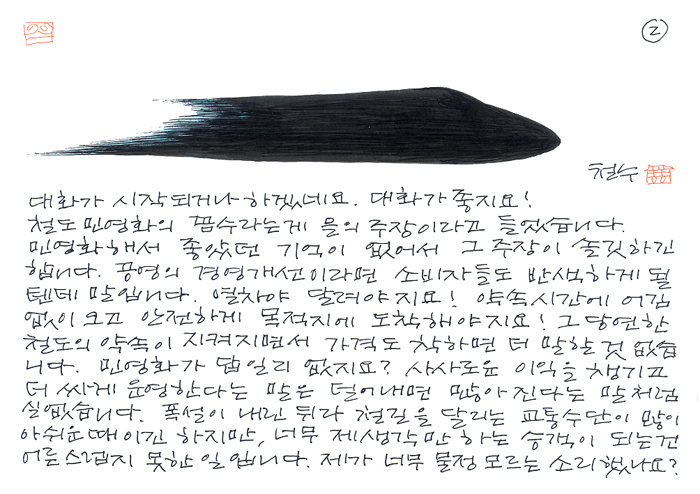 ②
철수
대화가 시작되거나 하겠네요. 대화가 좋지요!
철도 민영화의 꼼수라는게 을의 주장이라고 들었습니다.
민영화해서 좋았던 기억이 없어서 그 주장이 솔깃하긴
합니다. 공영의 경영개선이라면 소비자들도 반색하게 될
텐데 말입니다. 열차야 달려야지요! 약속시간에 어김
없이 오고 안전하게 목적지에 도착해야지요! 그 당연한
철도의 약속이 지켜지면서 가격도 착하면 더 말할 것 없습
니다. 민영화가 답일리 없지요? 사사로운 이익을 챙기고
더 싸게 운영한다는 말은 덜어내면 많아진다는 말처럼
실없습니다. 폭설이 내린 뒤라 철길을 달리는 교통수단이 많이
아쉬운 때이긴 하지만, 너무 제생각만 하는 승객이 되는건
어른스럽지 못한 일입니다. 제가 너무 물정 모르는 소리했나요?